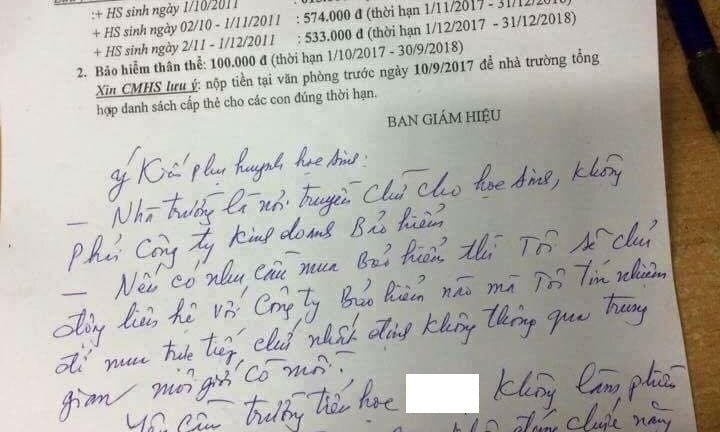 :+ HS sinh ngày 1/10/2011
+ HS sinh ngày 02/10 - 1/11/2011 : 574.000 đ (thời hạn 1/11/2017 - 31/12/2018)
+ HS sinh ngày 2/11 - 1/12/2011 : 533.000 đ (thời hạn 1/12/2017 - 31/12/2018)
2. Bảo hiểm thân thể: 100.000 đ (thời hạn 1/10/2017 - 30/9/2018)
Xin CMHS lưu ý: nộp tiền tại văn phòng trước ngày 10/9/2017 để nhà trường tổng
hợp danh sách cấp thẻ cho các con đúng thời hạn.
BAN GIÁM HIỆU
ý Kiến phụ huynh học sinh:
— Nhà trường là nơi truyền chữ cho học sinh, không
phải Công ty kinh doanh Bảo hiểm
— Nếu có nhu cầu mua Bảo hiểm thì Tôi sẽ chủ
động liên hệ với Công ty Bảo hiểm nào mà Tôi tín nhiệm
để mua trực tiếp, chứ nhất định không thông qua trung
gian môi giới cò mồi.
Yêu cầu trường tiểu học không làm phiền
chức năng